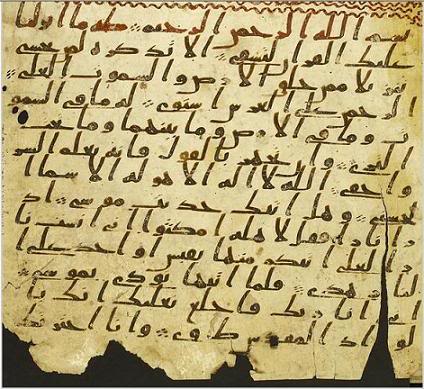 بسم الله الرحمن الرحيم طه ما انزلنا
عليك القران لتشقى الا تذكرة لمن يخشى
تنزيلا ممن خلق الارض والسموت العلى
الرحمن على العرش استوى له ما في السمو
ت وما في الارض وما بينهما وما تحت
الثرى وان تجهر بالقول فانه يعلم السر
واخفى الله لا اله الا هو له الاسما ا
لحسنى وهل اتيك حديث موسى اذ
را نارا فقل لاهله امكثوا اني انست نا
را لعلي اتيكم منها بقبس او اجد على ا
لنار هدى فلما اتيها نودي يموسى
اني انا ربك فاخلع نعليك انك با
لواد المقدس طوى وانا اخترتك